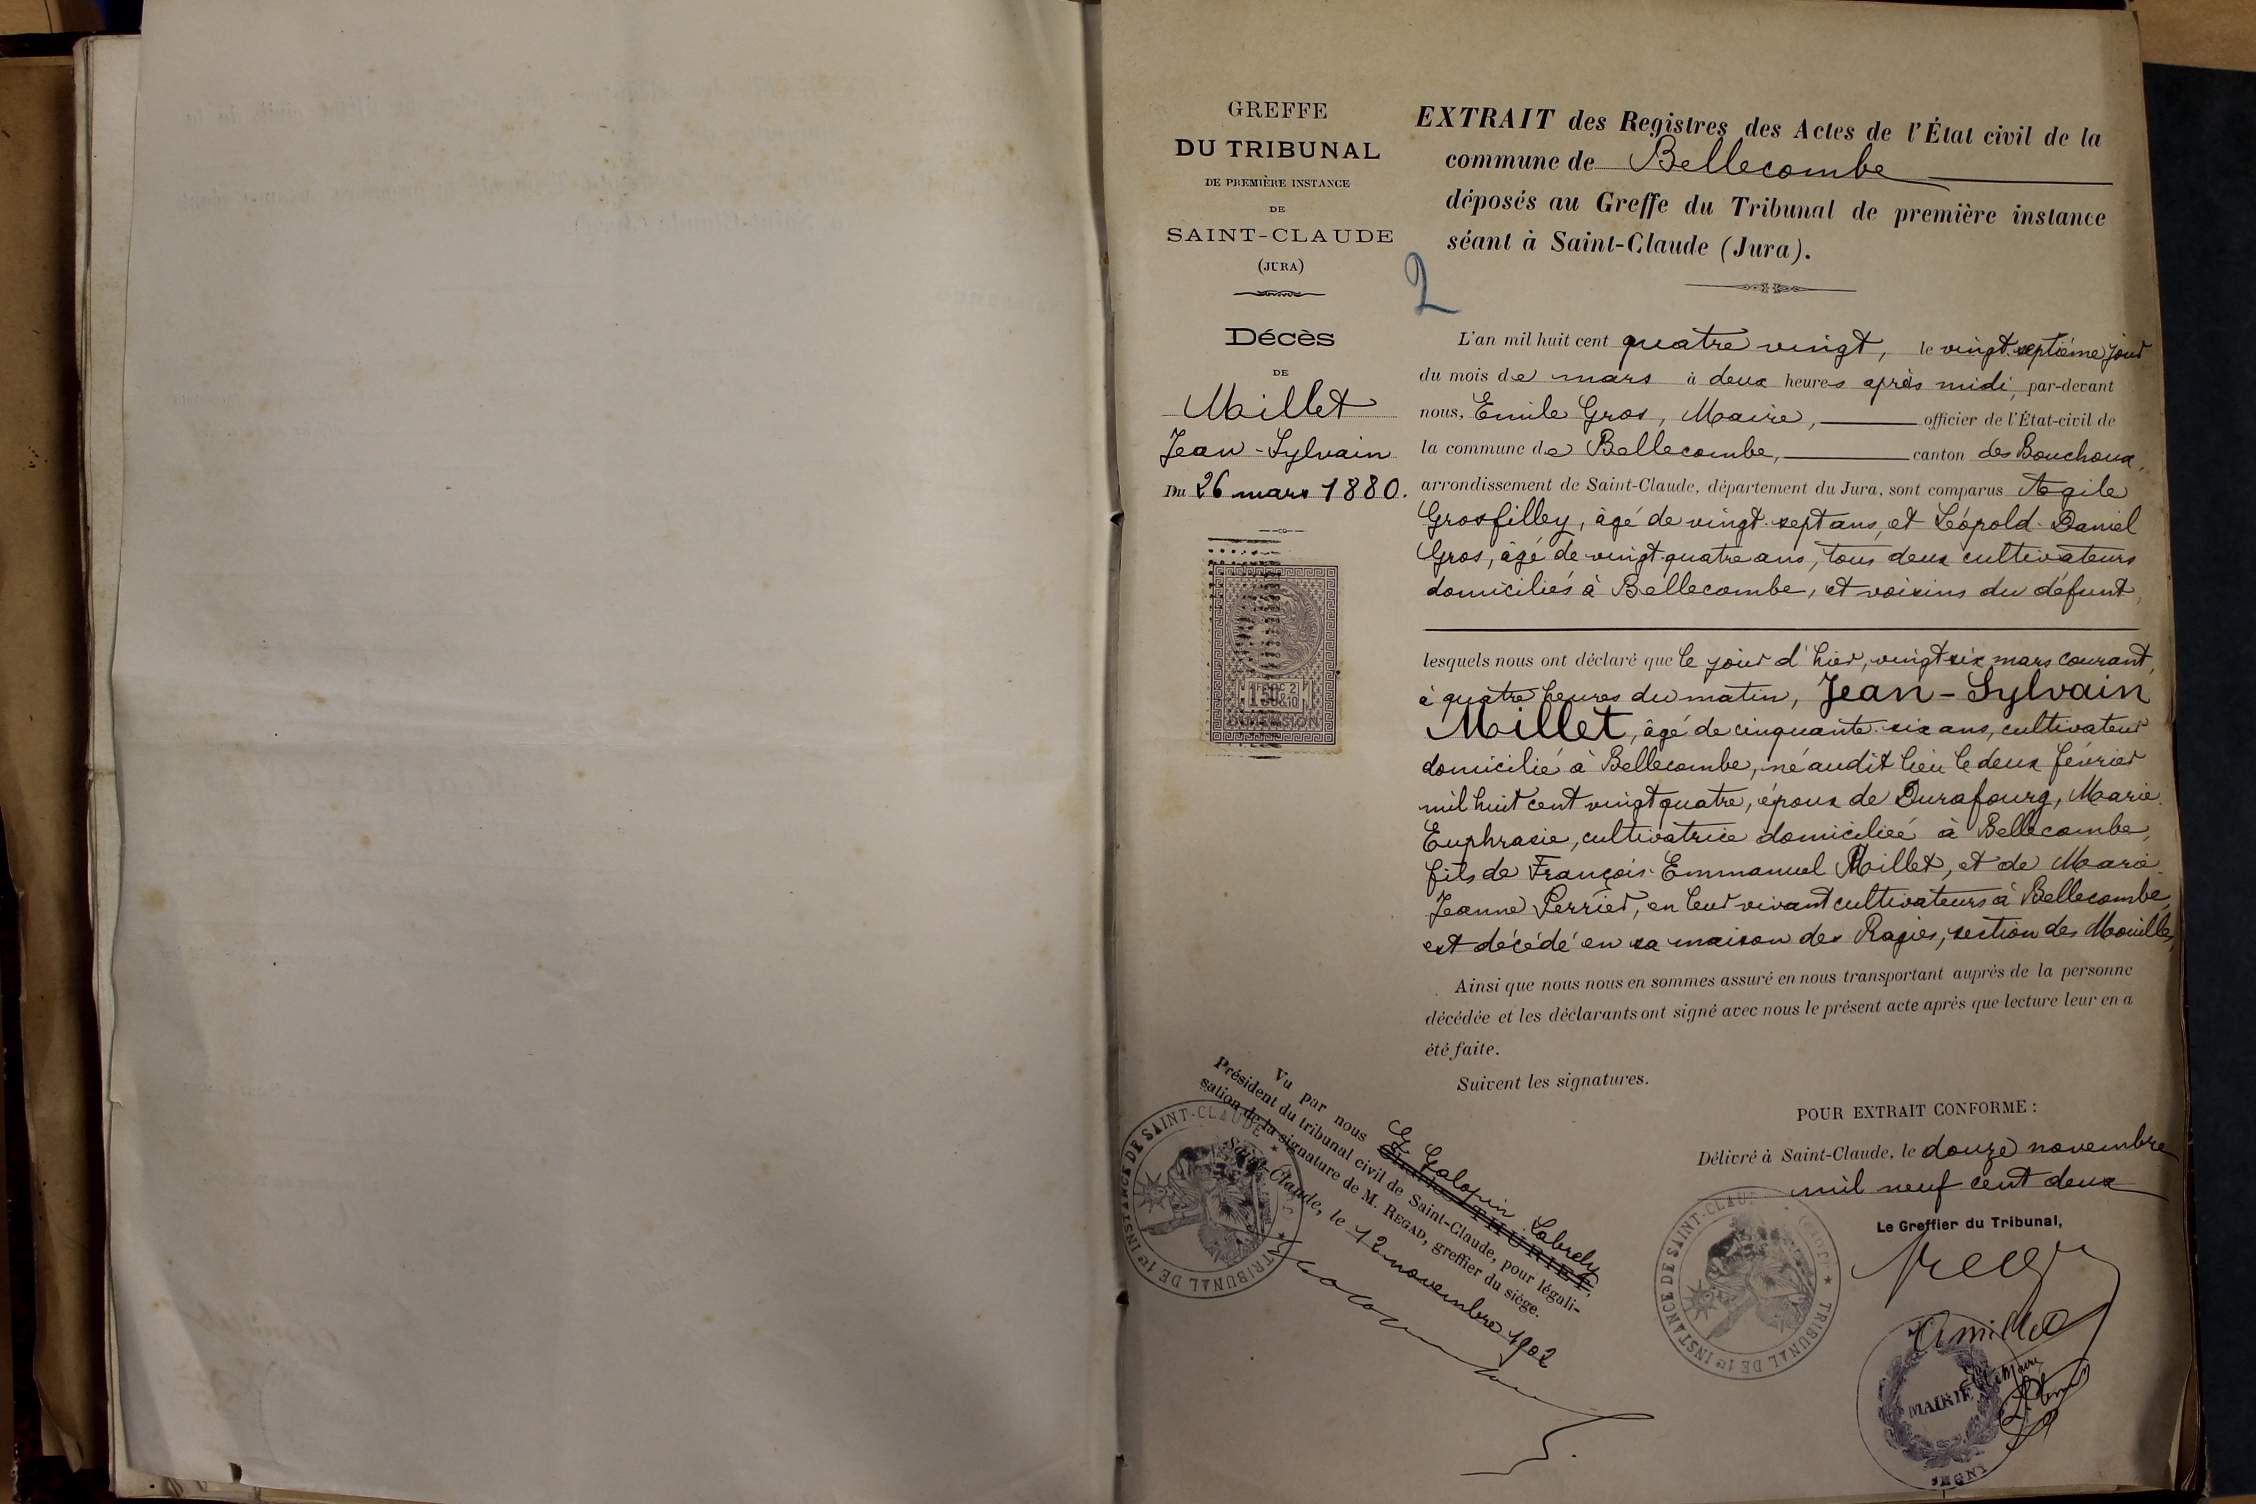 GREFFE
DU TRIBUNAL
DE PREMIÈRE INSTANCE
DE
SAINT-CLAUDE
(JURA)
Décès
DE
Millet
Jean-Sylvain
Du 26 mars 1880.
2
EXTRAIT des Registres des Actes de l'État civil de la
commune de Bellecombe
déposés au Greffe du Tribunal de première instance
séant à Saint-Claude (Jura).
L'an mil huit cent quatre vingt, le vingt septième jour
du mois de mars à deux heures après midi, par-devant
nous, Emile Gros, Maire, officier de l'État-civil de
la commune de Bellecombe, canton des Bouchoux,
arrondissement de Saint-Claude, département du Jura, sont comparus Agile
Grosfilley, âgé de vingt-sept ans, et Léopold-Daniel
Gros, âgé de vingt-quatre ans, tous deux cultivateurs
domiciliés à Bellecombe, et voisins du défunt,
lesquels nous ont déclaré que le jour d'hier, vingt six mars courant,
à quatre heures du matin, Jean-Sylvain
Millet, âgé de cinquante-six ans, cultivateur
domicilié à Bellecombe, né audit lieu le deux février
mil huit cent vingt quatre, époux de Durafourg, Marie-
Euphrasie, cultivatrice domiciliée à Bellecombe,
fils de François-Emmanuel Millet, et de Marie-
Jeanne Perrier, en leur vivant cultivateurs à Bellecombe,
est décédé en sa maison des Ragies, section des Mouilles,
Ainsi que nous nous en sommes assuré en nous transportant auprès de la personne
décédée et les déclarants ont signé avec nous le présent acte après que lecture leur en a
été faite.
Suivent les signatures.
POUR EXTRAIT CONFORME :
Délivré à Saint-Claude, le douze novembre
mil neuf cent deux
Le Greffier du Tribunal,
Vu par nous G. Galopin Labrely
Président du tribunal civil de Saint-Claude, pour légali-
sation de la signature de M. REGAD, greffier du siège.
Saint-Claude, le 12 novembre 1902
TRIBUNAL DE 1re INSTANCE DE SAINT-CLAUDE
TRIBUNAL DE 1re INSTANCE DE SAINT-CLAUDE
MAIRIE
SEGNY
DIMENSION